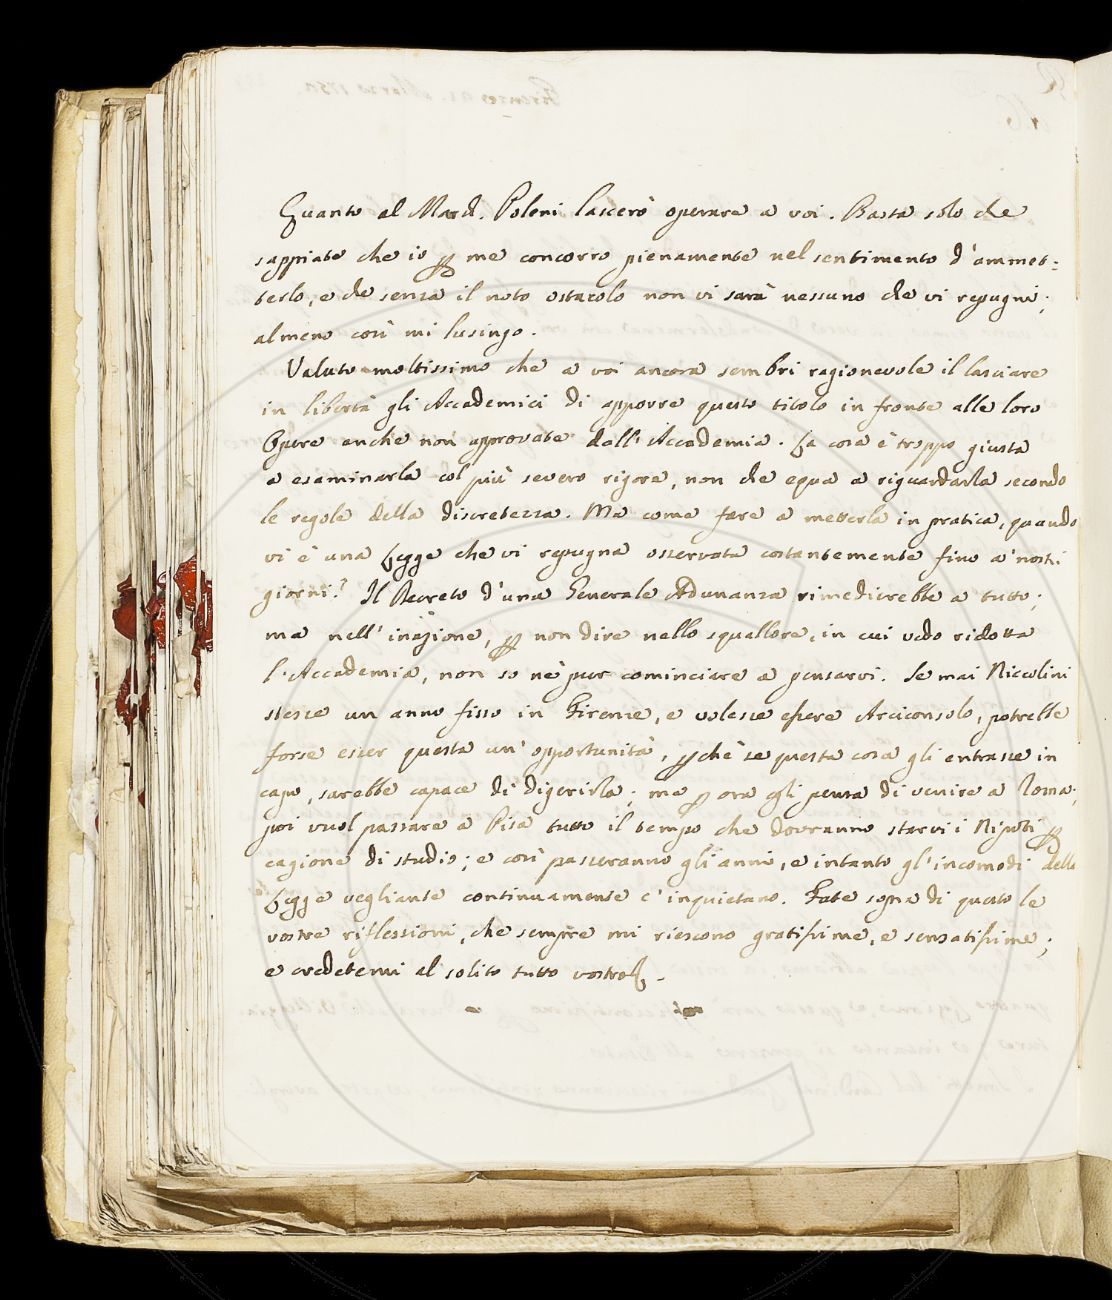 Quanto al March. Poleni lascerò operare a voi. Basta solo che
sappiate che io p me concorro pienamente nel sentimento d'ammet:
terlo, e che senza il noto ostacolo non vi sarà nessuno che vi repugni;
almeno così mi lusingo.
Valuto moltissimo che a voi ancora sembri ragionevole il lasciare
in libertà gli Accademici di apporre questo titolo in fronte alle loro
Opere anche non approvate dall'Accademia. La cosa è troppo giusta
a esaminarla col più severo rigore, non che equa a riguardarla secondo
le regole della discretezza. Ma come fare a metterla in pratica, quando
vi è una Legge che vi repugna osservata costantemente fino a' nostri
giorni? Il Decreto d'una Generale Adunanza rimedierebbe a tutto;
ma nell'inazione, p non dire nello squallore, in cui vedo ridotta
l'Accademia, non so nè pur cominciare a pensarvi. Se mai Niccolini
stesse un anno fisso in Firenze, e volesse essere Arciconsolo, potrebbe
forse esser questa un'opportunità, pchè se questa cosa gli entrasse in
capo, sarebbe capace di digerirla; ma p ora egli pensa di venire a Roma;
poi vuol passare a Pisa tutto il tempo che dovranno starvi i Nipoti p
cagione di studio; e così passeranno gli anni, e intanto gl'incomodi della
Legge vegliante continuamente c'inquietano. Fate sopra di questo le
vostre riflessioni, che sempre mi riescono gratissime, e sensatissime;
e credetemi al solito tutto vostro